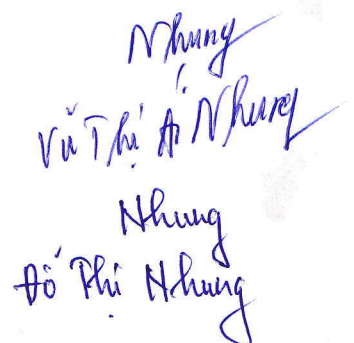 Nhung
Vũ Thị Ái Nhung
Nhung
Đỗ Thị Nhung